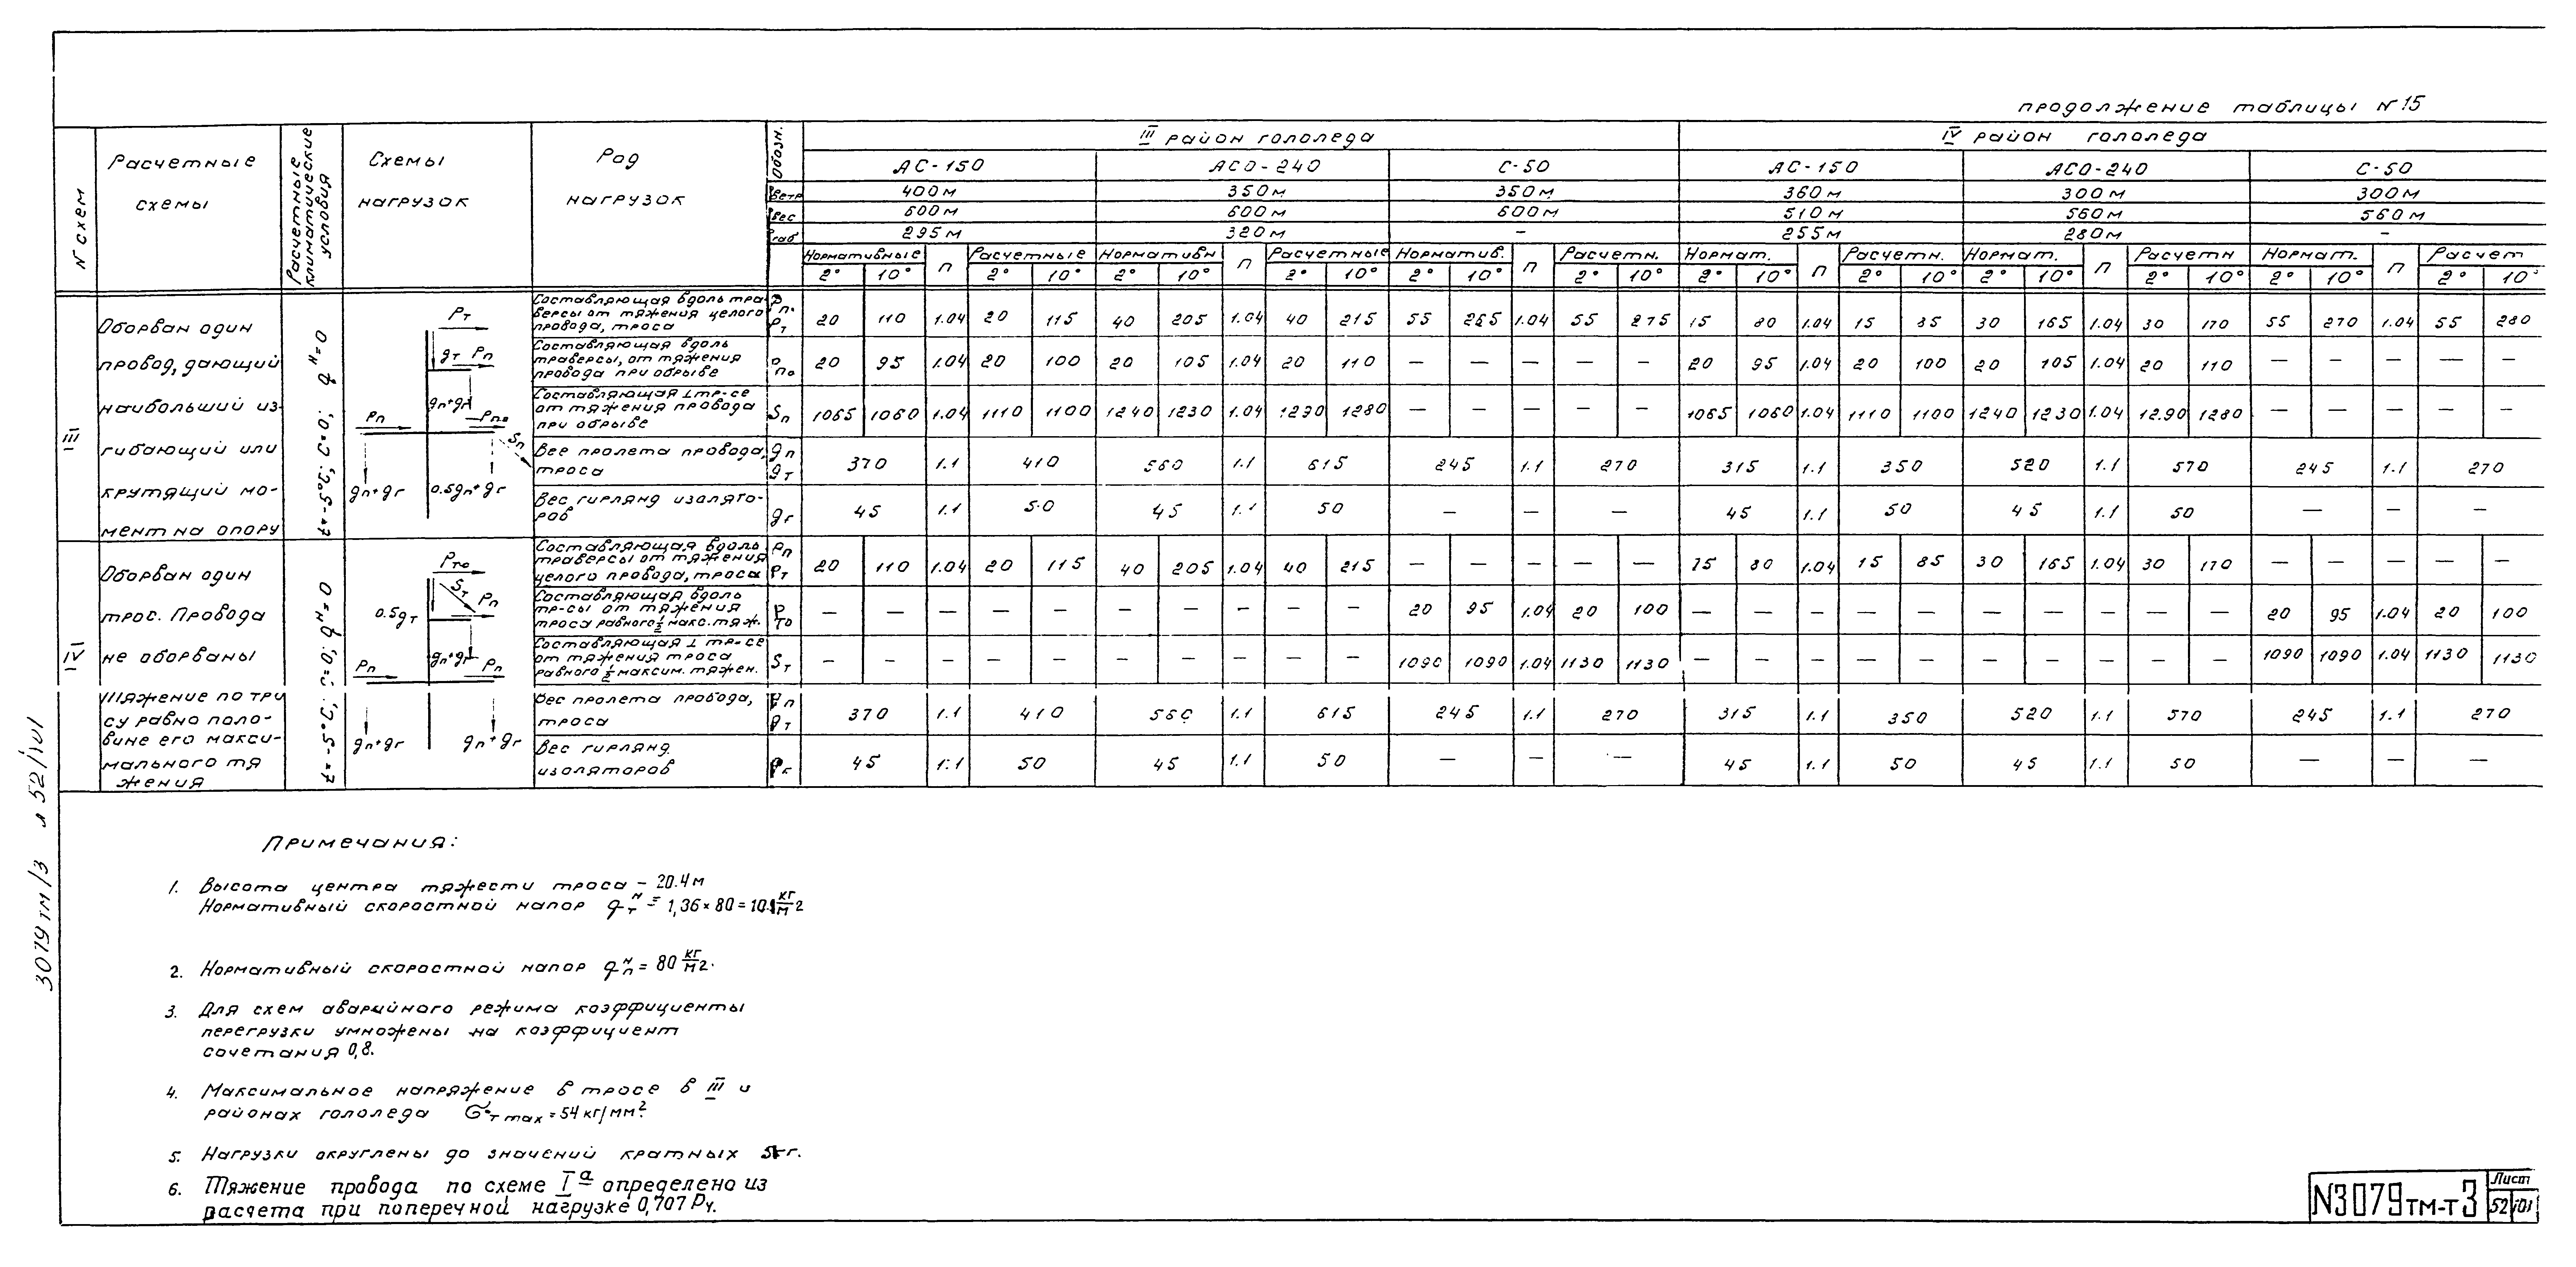 продолжение таблицы N 15
N схем
Расчетные схемы
Расчетные климатические условия
Схемы нагрузок
Род нагрузок
Обозн.
III район гололеда
IV район гололеда
АС-150 АСО-240 С-50 АС-150 АСО-240 С-50
Ветр 400м 350м 350м 360м 300м 300м
Вес 600м 600м 600м 510м 560м 560м
Габ 295м 320м - 255м 280м -
Нормативные п Расчетные Нормативн п Расчетные Норматив. п Расчетн. Нормат. п Расчетн. Нормат. п Расчетн Нормат. п Расчет
2° 10° 2° 10° 2° 10° 2° 10° 2° 10° 2° 10° 2° 10° 2° 10° 2° 10° 2° 10° 2° 10° 2° 10°
III
Оборван один
провод, дающий
наибольший из-
гибающий или
крутящий мо-
мент на опору
t=-5°С; С=0; qн=0
Pт
gт Pп
gп+gг
Pп Pпо
Sп
gп+gг 0.5gп+gг
Составляющая вдоль тра-
версы от тяжения целого
провода, троса
Pп. Pт 20 110 1.04 20 115 40 205 1.04 40 215 55 265 1.04 55 275 15 80 1.04 15 85 30 165 1.04 30 170 55 270 1.04 55 280
Составляющая вдоль
траверсы, от тяжения
провода при обрыве
Pпо 20 95 1.04 20 100 20 105 1.04 20 110 — — — — — 20 95 1.04 20 100 20 105 1.04 20 110 — — — — —
Составляющая ⊥ тр-се
от тяжения провода
при обрыве
Sп 1065 1060 1.04 1110 1100 1240 1230 1.04 1290 1280 — — — — — 1065 1060 1.04 1110 1100 1240 1230 1.04 1290 1280 — — — — —
Вес пролета провода,
троса
gп gт 370 1.1 410 560 1.1 615 245 1.1 270 315 1.1 350 520 1.1 570 245 1.1 270
Вес гирлянд изолято-
ров
gг 45 1.1 50 45 1.1 50 — — — 45 1.1 50 45 1.1 50 — — —
IV
Оборван один
трос. Провода
не оборваны
Тяжение по тро
су равно поло-
вине его макси-
мального тя
жения
t=-5°С; С=0; qн=0
Pто
Sт
0.5gт Pп
gп+gг
Pп Pп
gп+gг gп+gг
Составляющая вдоль
траверсы от тяжения
целого провода, троса
Pп Pт 20 110 1.04 20 115 40 205 1.04 40 215 — — — — — 15 80 1.04 15 85 30 165 1.04 30 170 — — — — —
Составляющая вдоль
тр-сы от тяжения
троса равного 1/2 макс. тяж.
Pто — — — — — — — — — — 20 95 1.04 20 100 — — — — — — — — — — 20 95 1.04 20 100
Составляющая ⊥ тр-се
от тяжения троса
равного 1/2 максим. тяжен.
Sт — — — — — — — — — — 1090 1090 1.04 1130 1130 — — — — — — — — — — 1090 1090 1.04 1130 1130
Вес пролета провода,
троса
gп gт 370 1.1 410 560 1.1 615 245 1.1 270 315 1.1 350 520 1.1 570 245 1.1 270
Вес гирлянд
изоляторов
gг 45 1.1 50 45 1.1 50 — — — 45 1.1 50 45 1.1 50 — — —
Примечания:
1. Высота центра тяжести троса - 20.4м
Нормативный скоростной напор qтн = 1,36×80=109 кг/м2
2. Нормативный скоростной напор qпн = 80 кг/м2.
3. Для схем аварийного режима коэффициенты
перегрузки умножены на коэффициент
сочетания 0,8.
4. Максимальное напряжение в тросе в III и
районах гололеда σт max = 54 кг/мм2.
5. Нагрузки округлены до значений кратных 5кг.
6. Тяжение провода по схеме Iа определено из
расчета при поперечной нагрузке 0,707 Pч.
3079тм/3 л 52/101
N3079тм-т3
Лист
52 101